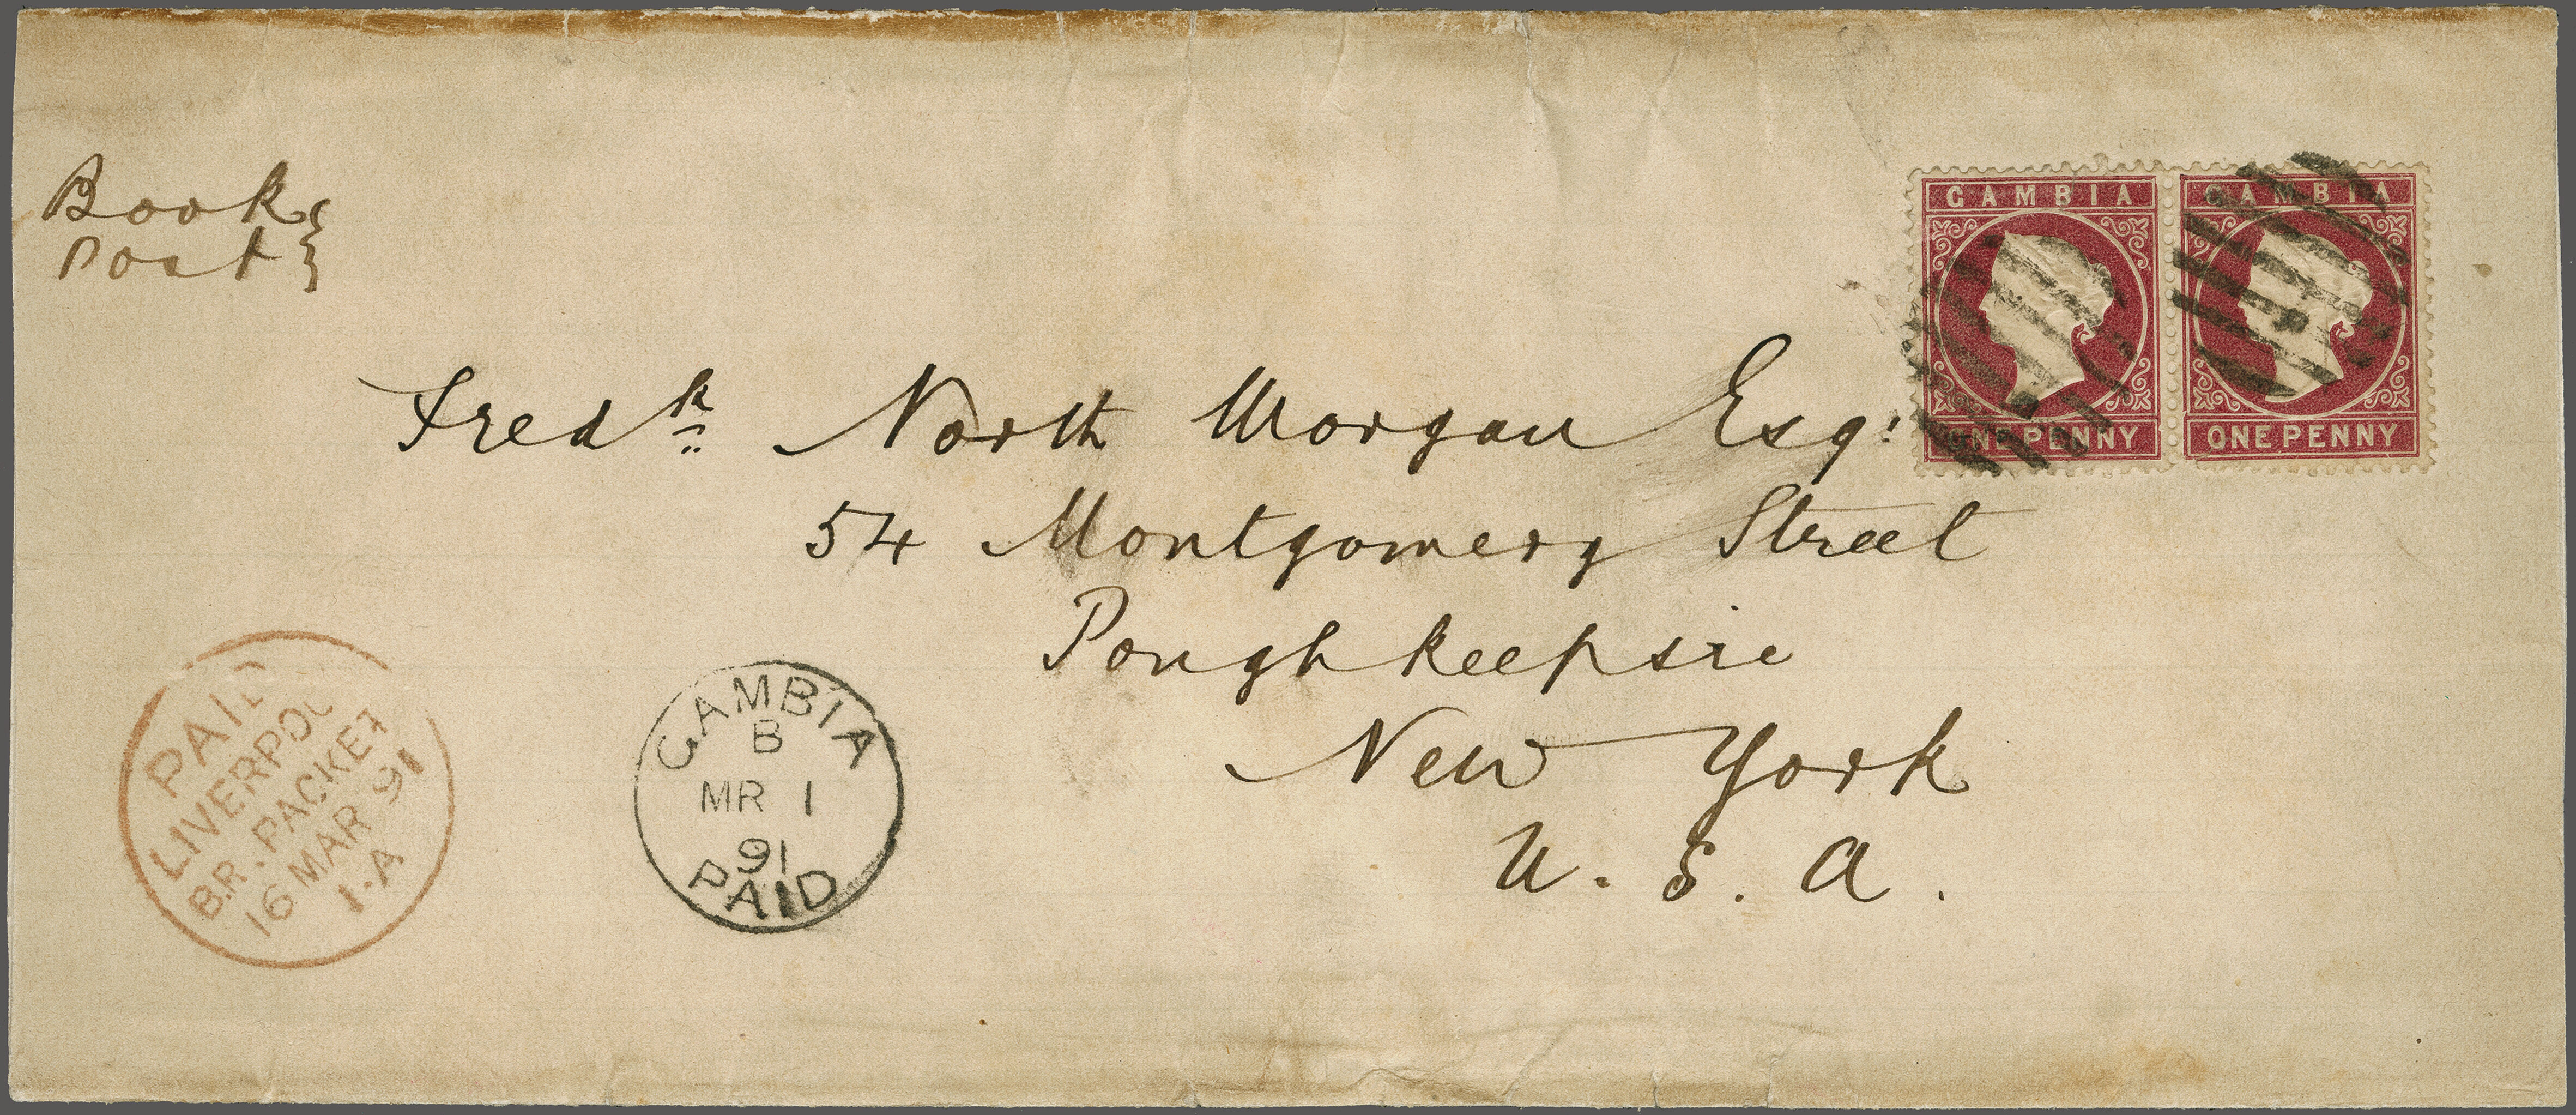 Book
Post
GAMBIA
GAMBIA
ONE PENNY
ONE PENNY
Fredk North Morgan Esq:
54 Montgomery Street
Poughkeepsie
New York
U. S. A.
PAID
LIVERPOOL
B.R. PACKET
16 MAR 91
1-A
GAMBIA
B
MR 1
91
PAID